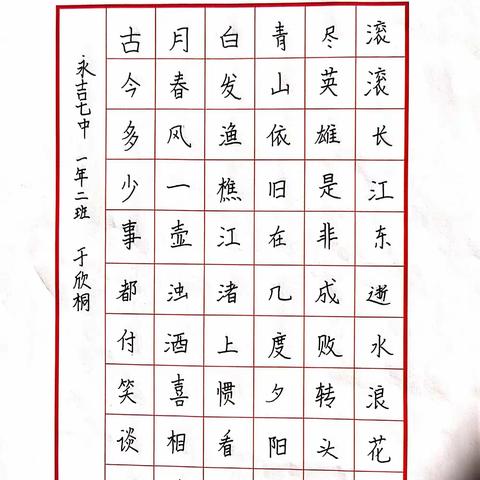 滚滚长江东逝水浪花
尽英雄是非成败转头
青山依旧在几度夕阳
白发渔樵江渚上惯看
月春风一壶浊酒喜相
古今多少事都付笑谈
永吉七中 一年二班 于欣桐